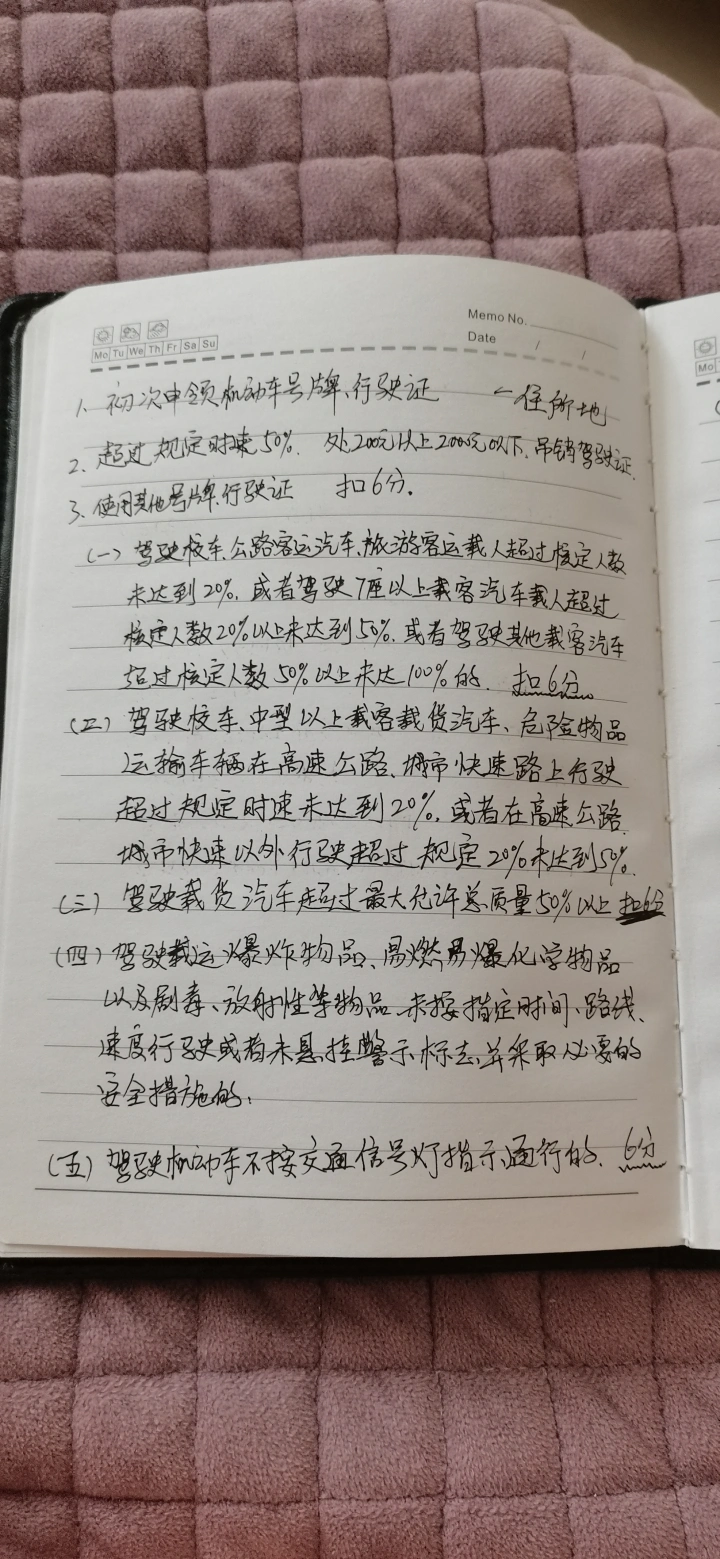 Memo No.
Mo Tu We Th Fr Sa Su
Date / /
1、初次申领机动车号牌、行驶证 ←住所地
2、超过规定时速50%. 处200元以上2000元以下、吊销驾驶证.
3、使用其他号牌、行驶证 扣6分.
(一) 驾驶校车、公路客运汽车、旅游客运载人超过核定人数
未达到20%. 或者驾驶7座以上载客汽车载人超过
核定人数20%以上未达到50%. 或者驾驶其他载客汽车
超过核定人数50%以上未达100%的. 扣6分.
(二) 驾驶校车、中型以上载客载货汽车、危险物品
运输车辆在高速公路、城市快速路上行驶
超过规定时速未达到20%. 或者在高速公路、
城市快速以外行驶超过规定20%未达到50%.
(三) 驾驶载货汽车超过最大允许总质量50%以上 扣6分
(四) 驾驶载运爆炸物品、易燃易爆化学物品
以及剧毒、放射性等物品、未按指定时间、路线、
速度行驶或者未悬挂警示标志并采取必要的
安全措施的;
(五) 驾驶机动车不按交通信号灯指示通行的. 6分
Mo